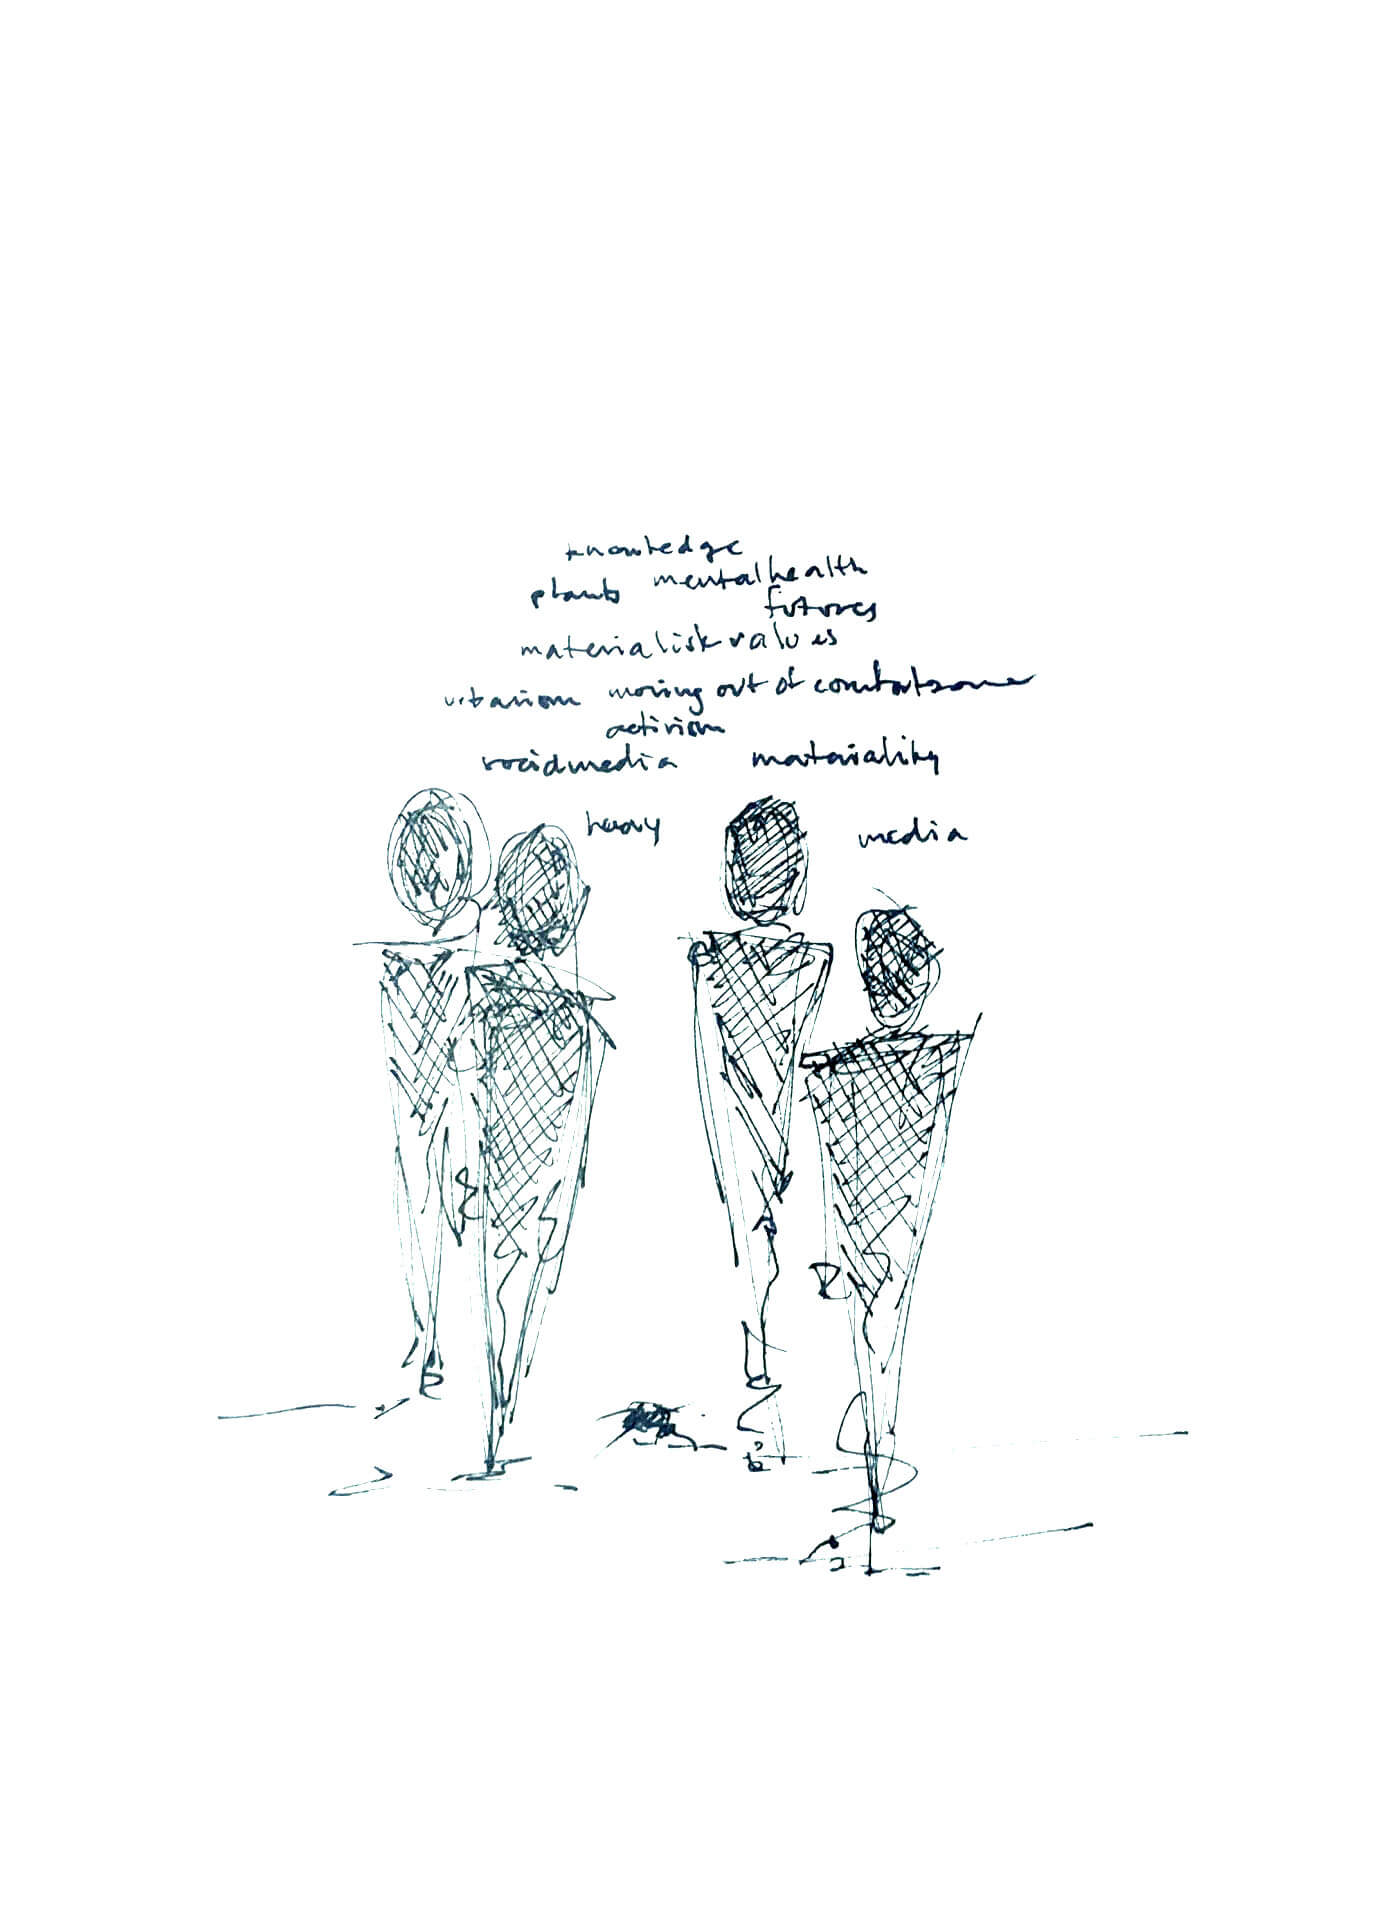 knowledge
plants mental health
futures
materialisk values
urbanism moving out of comfortzone
activism
social media materiality
heavy media